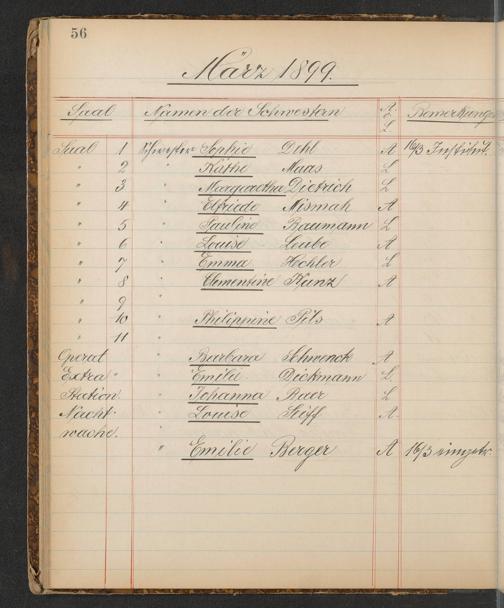 56
März 1899.
Saal Namen der Schwestern A. o. L Bemerkunge
Saal 1 Schwester Sophie Dehl A 16/3 Institut.
" 2 " Käthe Maas L
" 3 " Margaretha Dietrich L
" 4 " Elfriede Nismah A
" 5 " Pauline Baumann L
" 6 " Louise Leube A
" 7 " Emma Hechler L
" 8 " Clementine Kunz A
" 9 "
" 10 " Philippine Pils A
" 11 "
Operat " Barbara Schwenck A
Extra " " Emilie Dickmann L
Station " Johanna Baer L
Nacht- " Louise Seiff A
wache. "
" Emilie Berger A 16/3 eingetr.